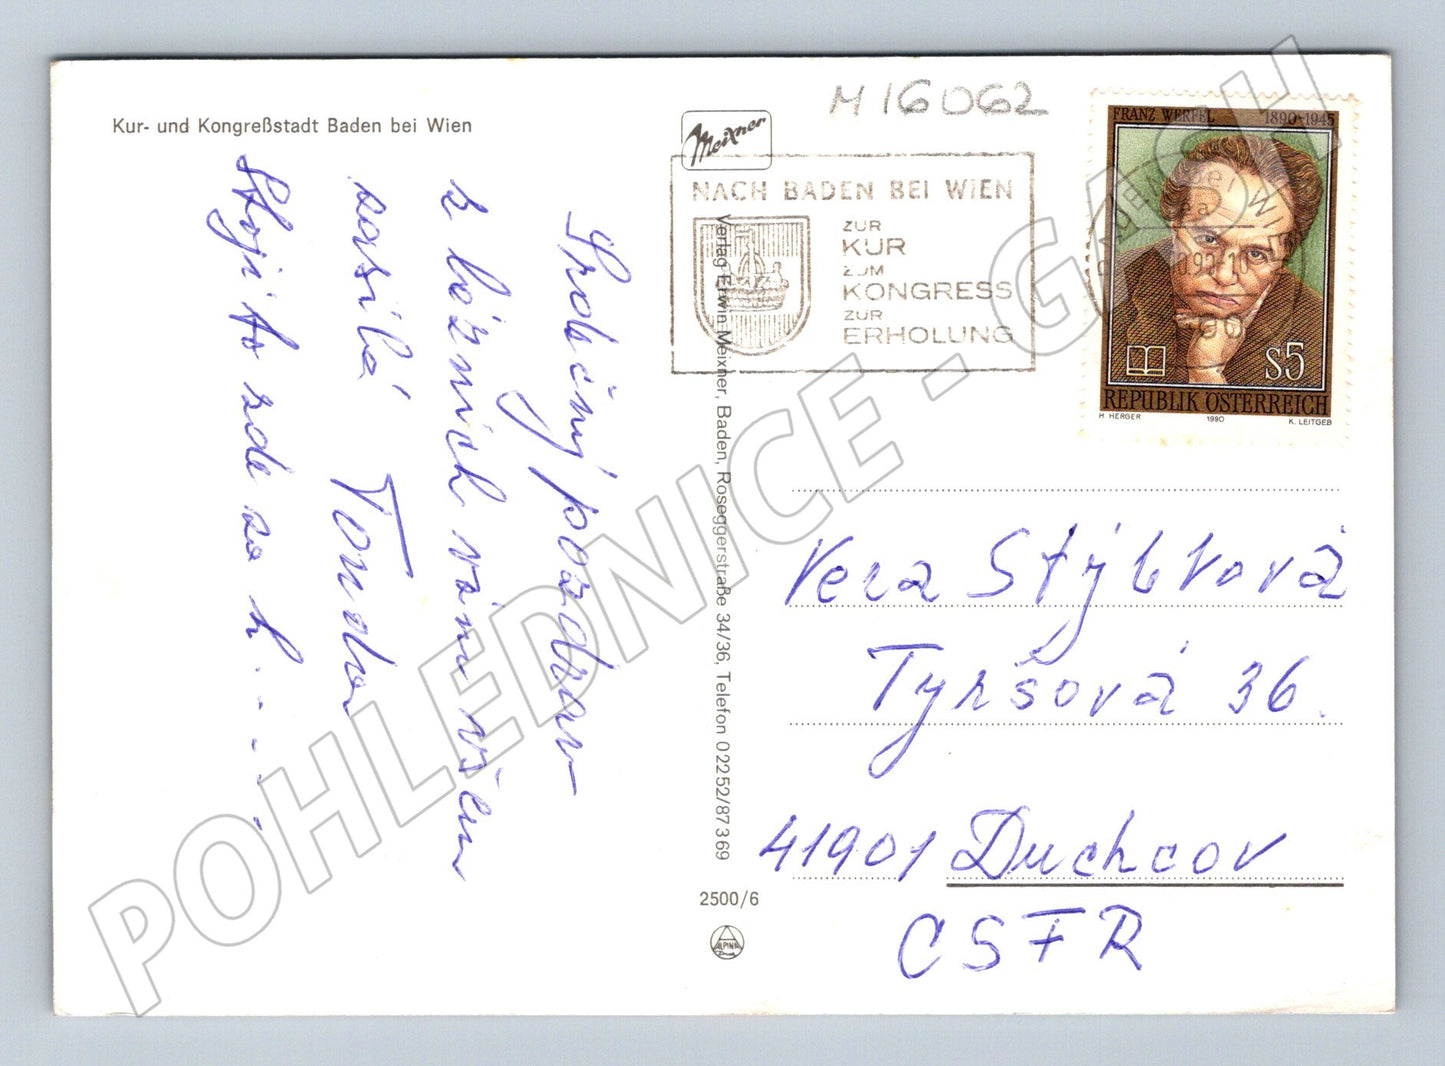 Kur- und Kongreßstadt Baden bei Wien
Srdečný pozdrav
z lázních vám všem
zasílá Tonda
Stojí to zde za h.....
Meixner
Verlag Erwin Meixner, Baden, Roseggerstraße 34/36, Telefon 02252/87369
2500/6
ALPINA
M 16062
NACH BADEN BEI WIEN
ZUR
KUR
ZUM
KONGRESS
ZUR
ERHOLUNG
FRANZ WERFEL 1890-1945
S5
REPUBLIK ÖSTERREICH
H. HERGER 1990 K. LEITGEB
Vera Stýblová
Tyršová 36.
41901 Duchcov
CSFR
POHLEDNICE - GASH